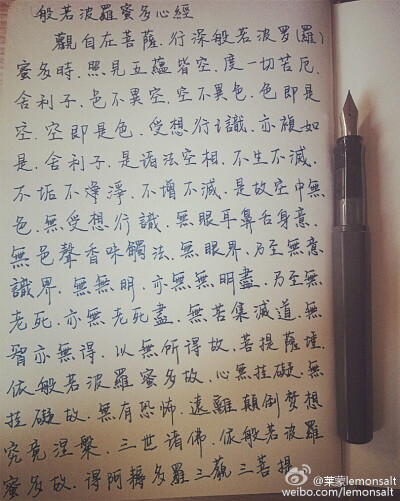 般若波羅蜜多心經
觀自在菩薩.行深般若波罗(羅)
蜜多時.照見五蘊皆空.度一切苦厄.
舍利子.色不異空.空不異色.色即是
空.空即是色.受想行識.亦複如
是.舍利子.是诸法空相.不生不滅.
不垢不净.不增不滅.是故空中無
色.無受想行識.無眼耳鼻舌身意.
無色聲香味觸法.無眼界.乃至無意
識界.無無明.亦無無明盡.乃至無
老死.亦無老死盡.無苦集滅道.無
智亦無得.以無所得故.菩提薩埵.
依般若波羅蜜多故.心無挂礙.無
挂礙故.無有恐怖.遠離顛倒梦想
究竟涅槃.三世诸佛.依般若波羅
蜜多故.得阿耨多羅三藐三菩提.
@莱蒙lemonsalt
weibo.com/lemonsalt